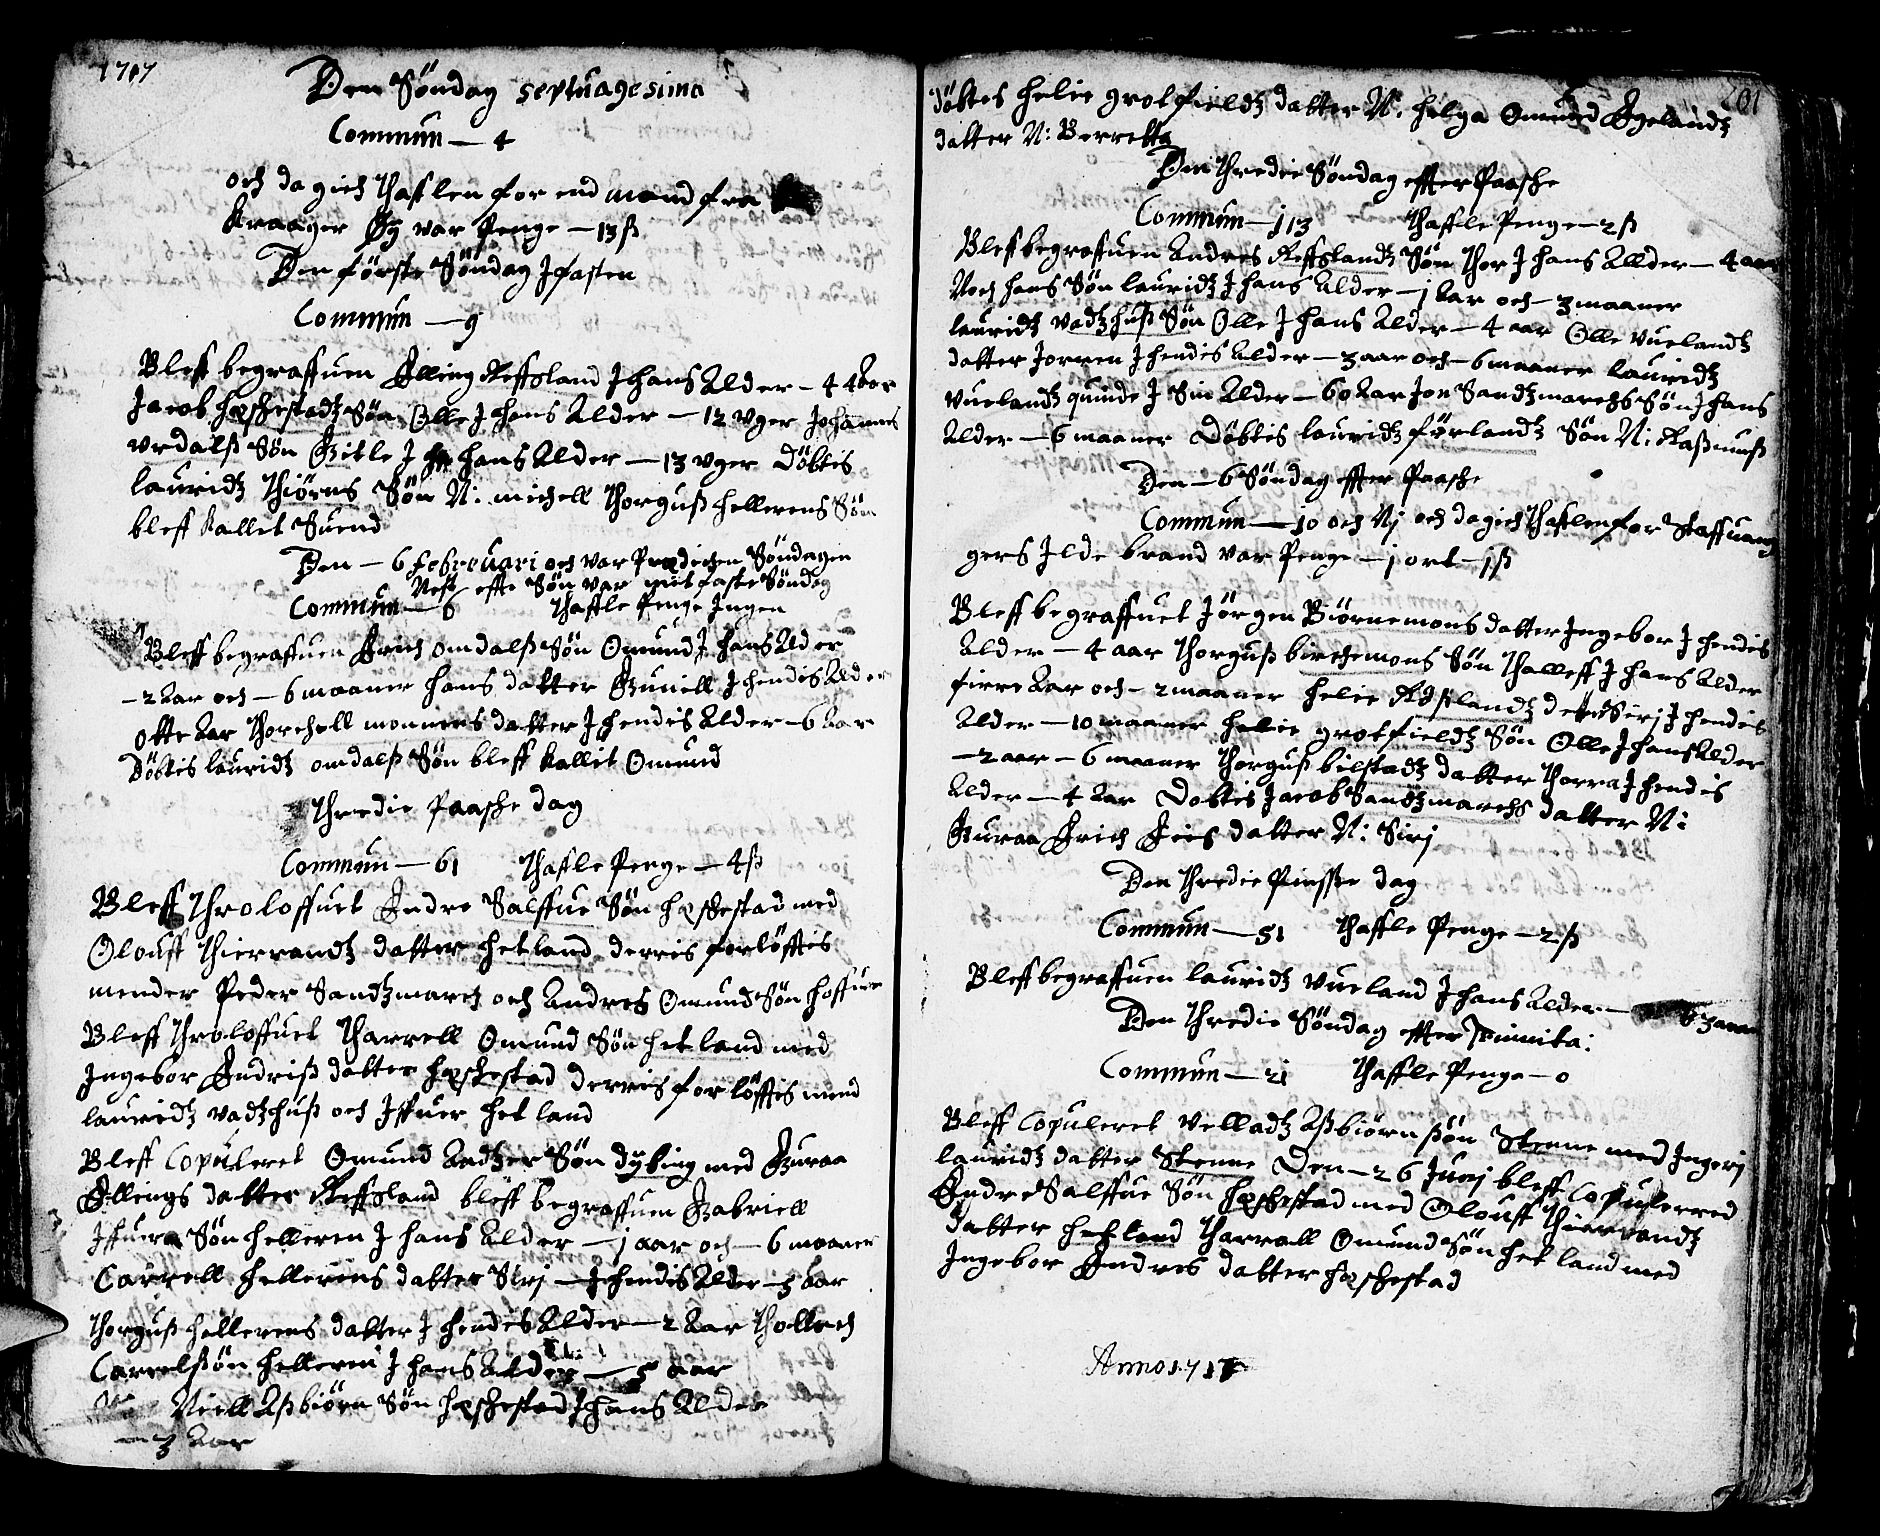 1717
Den Söndag septuagesima
Commun — 4
och da gich thafflen for end mand fra
Kraager Öÿ var Penge — 13 ß
Den förste Söndag J fasten
Commun — 9
Bleff begraffuen Elling Reffsland J hans Alder — 44 Aar
Jacob Heskestadtz Sön Olle J hans Alder — 12 vger Johannes
vrdalß Sön Gitle J hans Alder — 13 vger Döbtis
lauridtz Thiörns Sön N: michell Thorguß hellerens Sön
bleff kallet Suend
Den — 6 februari och var Predichen Söndagen
Nest effte Sön var mit faste Söndag
Commun — 6 thaffle Penge Ingen
Bleff begraffuen Erich omdalß Sön Omund J hans Alder
— 2 Aar och — 6 maaner hans datter Guniell J hendis Alder
otte Aar Thorchell monnens datter J hendis Alder — 6 Aar
Döbtis lauridtz omdalß Sön bleff kallit Omund
Thredie Paaske dag
Commun — 61 Thaffle Penge — 4 ß
Bleff throloffuet Endre Salffue Sön Heskestad med
Olouff Thierrandtz datter hetland derris forlöfftis
mender Peder Sandtzmarch och Andres Omund Sön hoffue
Bleff throloffuet Tharrell Omund Sön hetland med
Ingebor Endriß datter Heskestad derris forlöfftis mend
lauridtz vadtzhuß och Iffuer hetland
Bleff Copuleret Omund Aadtzer Sön dybing med Guraa
Ellings datter Reffsland bleff begraffuen Gabriell
Iffuer Sön helleren J hans Alder — j aar och — 6 maaner
Carrell hellerens datter Sirj — J hendis Alder — 3 Aar
Thorguß hellerens datter J hendis Alder — 2 Aar Thollech
Carrelßön helleren J hans Alder — 5 aar
Niell Aßbiörn Sön Heskestad J hans Alder
— 3 Aar
201
döbtes helie grotfieldtz datter N: helga Omund Egelandtz
datter N: Berretta
Den Thredie Söndag effter Paaske
Commun — j13 Thaffle Penge — 2 ß
Bleff begraffuen Andres Reffslandtz Sön Thor J hans Allder — 4 aar
Noch hans Sön lauridtz J hans Alder — j Aar och — 3 maaner
lauridtz vadtzhuß Sön Olle J hans Alder — 4 aar Olle vuelandtz
datter Jorren J hendis Alder — 3 aar och — 6 maaner lauridtz
vuelandtz quinde J Sin Alder — 60 Aar Jon Sandtzmarchs Sön J hans
Alder — 6 maaner Döbtis lauridtz förlandtz Sön N: Raßmuß
Den — 6 Söndag effter Paaske
Commun — 10 och Nj och da gich thafflen for Staffuang
gers Jlde brand var Penge — j ort — j ß
Bleff begraffuet Jörgen Biörnemons datter Ingebor J hendis
Alder — 4 aar Thorguß birchemons Sön Thalleff J hans Alder
firre Aar och — 2 maaner helie datter Sirj J hendis
Alder — 10 maaner helie grotfieldtz Sön Olle J hans Alder
— 2 aar — 6 maaner Thorguß bilstadtz datter Thorra J hendis
Alder — 4 Aar Döbtes Jacob Sandtzmarchs datter N:
Guraa Erich Eies datter N: Sirj
Den Thredie Pinsse dag
Commun — 51 Thaffle Penge — 2 ß
Bleff begraffuen lauridtz vueland J hans Alder — 63 aar
Den Thredie Söndag effter Trinnita:
Commun — 21 Thaffle Penge — 0
Bleff Copuleret Velladtz Aßbiörn ßön Steene med Ingerj
lauridtz datter Steene Den — 26 Junj bleff Copulerred
Endre Salffue Sön Heskestad med Olouff Thierrandtz
datter hetland Tharrall Omund Sön hetland med
Ingebor Endres datter Heskestad
Anno 1717